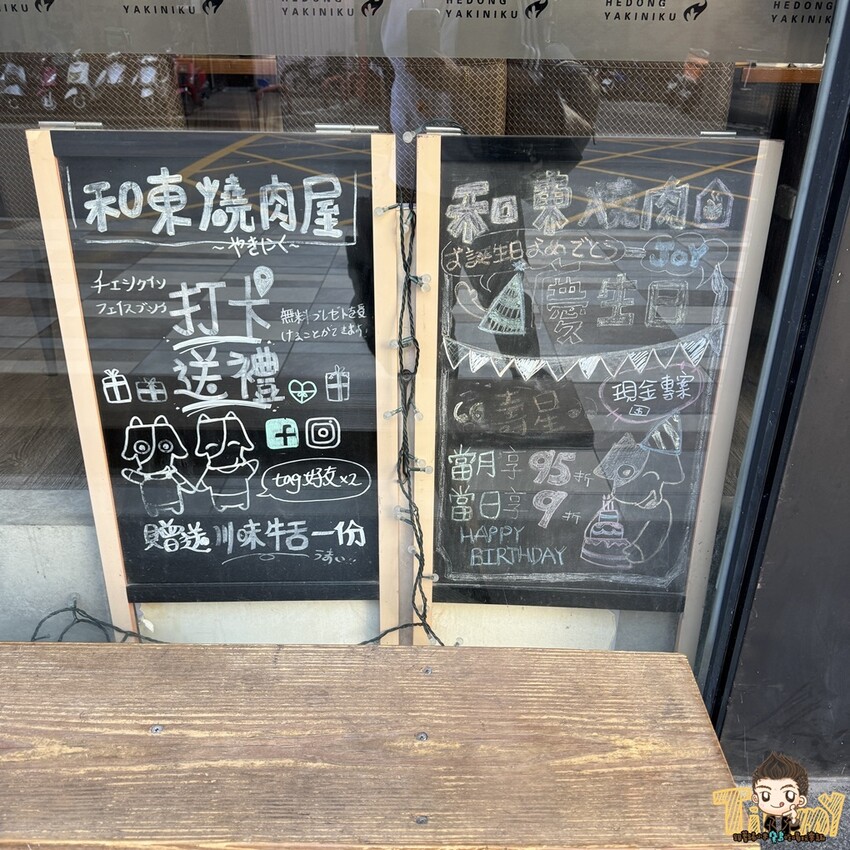 HEDONG
YAKINIKU
HEDONG
YAKINIKU
HEDONG
YAKINIKU
HEDONG
YAKINIKU
HEDONG
YAKINIKU
和東燒肉屋
~やきにく~
チェックイン
フェイスブック
打卡
送禮
無料プレゼントを受
けることができます!
tag好友x2
贈送川味牛舌一份
うまい
和東燒肉
お誕生日おめでとう
JOY
生日
現金專案
壽星
當月享95折
當日享9折
HAPPY
BIRTHDAY